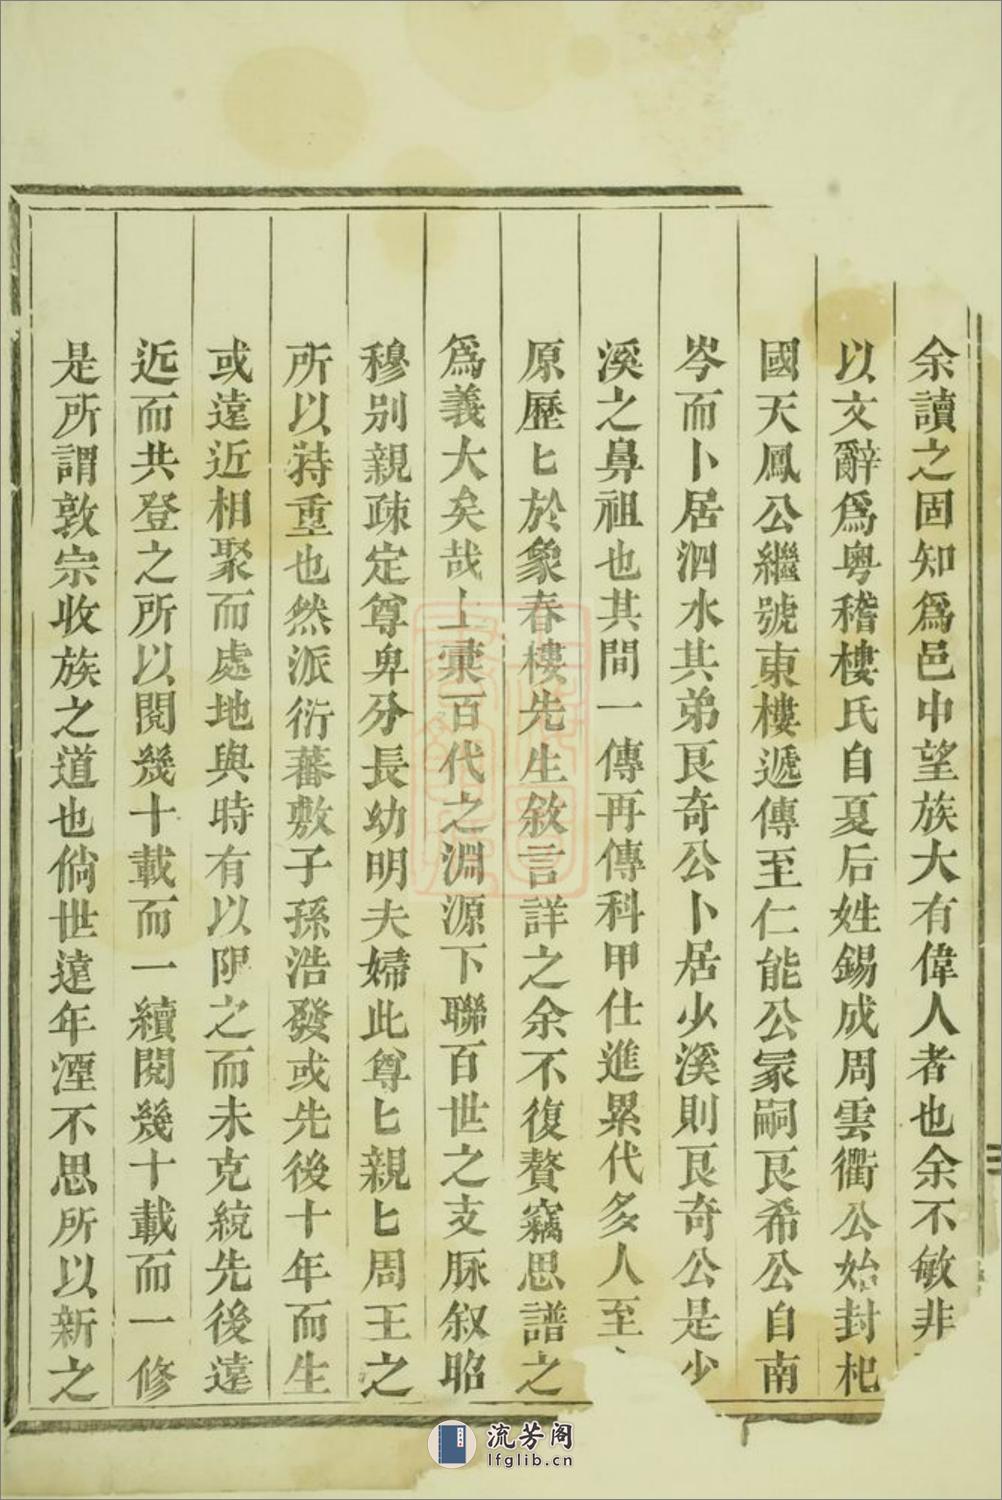 余讀之固知爲邑中望族大有偉人者也余不敏非
以文辭爲粵稽樓氏自夏后姓錫成周雲衢公始封杞
國天鳳公繼號東樓遞傳至仁能公冢嗣艮希公自南
岑而卜居泗水其弟艮奇公卜居少溪則艮奇公是少
溪之鼻祖也其間一傳再傳科甲仕進累代多人至
原歷匕於象春樓先生敘言詳之余不復贅竊思譜之
爲義大矣哉上彙百代之淵源下聯百世之支脈叙昭
穆別親疎定尊卑分長幼明夫婦此尊匕親匕周王之
所以特重也然派衍蕃敷子孫浩發或先後十年而生
或遠近相聚而處地與時有以限之而未克統先後遠
近而共登之所以閱幾十載而一續閱幾十載而一修
是所謂敦宗收族之道也倘世遠年湮不思所以新之
流芳阁
lfglib.cn